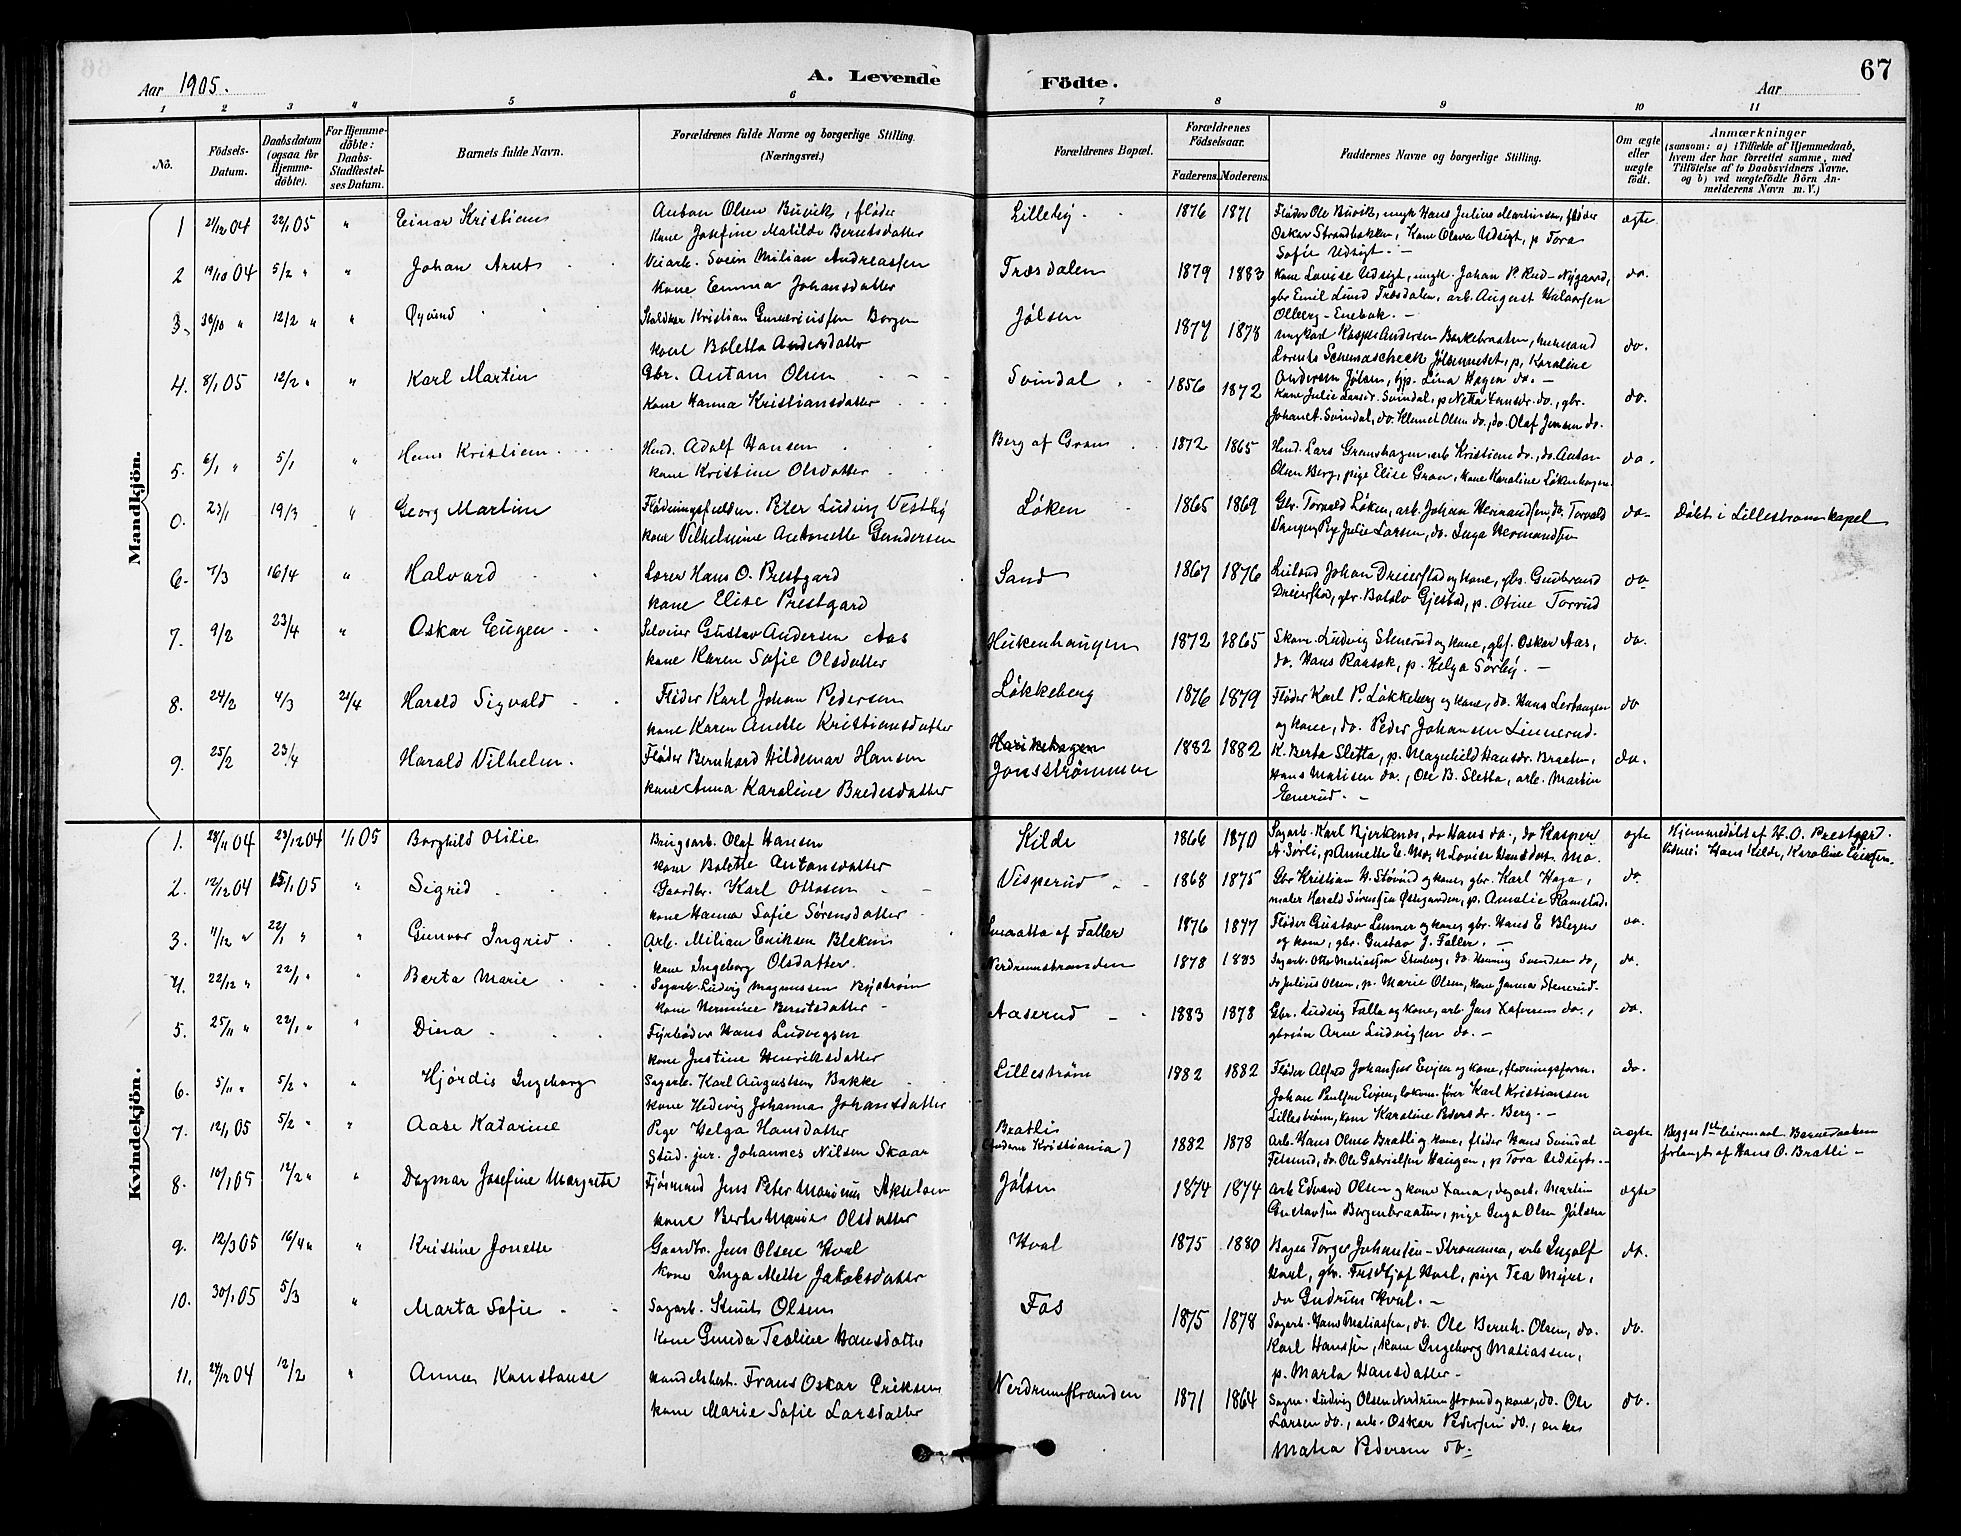 Aar 1905.
A. Levende Födte.
Aar
67
1 2 3 4 5 6 7 8 9 10 11
No.
Födsels-Datum.
Daabsdatum (ogsaa for Hjemmedöbte).
For Hjemmedöbte: Daabs-Stadfæstelses Datum.
Barnets fulde Navn.
Forældrenes fulde Navne og borgerlige Stilling. (Næringsvei.)
Forældrenes Bopæl.
Forældrenes Födselsaar.
Faderens. Moderens.
Faddernes Navne og borgerlige Stilling.
Om ægte eller uægte födt.
Anmærkninger
(saasom: a) i Tilfælde af Hjemmedaab, hvem der har forrettet samme, med Tilföielse af to Daabsvidners Navne, og b) ved uægtefödte Börn Anmelderens Navn m. V.)
Mandkjön.
1 21/12 04 22/1 05 " Einar Kristian Anton Olsen Buvik, fløder Lilleby 1876 1871 Fløder Ole Buvik, ungk Hans Julius Martinsen, fløder ægte
kone Josefine Matilde Berntsdatter Oskar Strandbakken, Kone Olava Udsigt, p Tora
Sofie Udsigt. -
2 19/10 04 5/2 " " Johan Arnt Veiarb. Svein Milian Andreassen Træsdalen 1879 1883 Kone Lovise Udsigt, ungk. Johan P. Rud-Nygaard, do.
kone Emma Johansdatter gbr Emil Lund Træsdalen, arb. August Halvorsen
Olberg - Enebak. -
3. 30/10 " 12/2 " " Øyvind Kristian Gunneriussen Borgen Jølsen 1874 1878 Andersen do.
kone Boletta Andersdatter Lorents Jølsen, p, Karoline
Andersen Jølsen, tjp. Lina Hagen do. -
4. 8/1 05 12/2 " " Karl Martin Gbr. Antam Olsen Svindal 1856 1872 Kone Julie Larsdr. Svindal, p Netta do., gbr. do.
Kone Hanna Kristiansdatter Johan A. Svindal, do Klemet Olsen do., do. Olaf Jensen do.
5. 6/1 " 5/1 " Hans Kristian Husd. Adolf Hansen Berg af Gran 1872 1865 Husd. Lars Granshagen, arb Kristian do., do. Anton do.
kone Kristine Olsdatter Olsen Berg, pige Elise Gran, kone Karoline Løkenhagen
0. 23/1 19/3 " Georg Martin Peter Ludvig Vestby Løken 1865 1869 Gbr. Torvald Løken, arb. Johan Hermandsen, do. Torvald do. Døbt i Lillestrøm kapel
kone Vilhelmine Antonette Gundersen Vangen Pige Julie Larsen, do. Inga Hermandsen
6. 7/3 16/4 " Halvard Lærer Hans O. Prestgard Sand 1867 1876 Johan Dreierstad og kone, gbr. Gudbrand do
kone Elise Prestgard Dreierstad, gbr. Gjestad, p. Otine Torrud
7. 9/2 23/4 " Oskar Eugen Selveier Gustav Andersen Aas 1872 1865 Skom. Ludvig Stenerud og kone, gbs. Oskar Aas, do.
kone Karen Sofie Olsdatter do. Hans Raasok, p. Helga Sörby. -
8. 24/2 4/3 24/4 Harald Sigvald Fløder Karl Johan Pedersen Løkkeberg 1876 1879 Fløder Karl P. Løkkeberg og kone, do. Hans Lerhaugen do
kone Karen Anette Kristiansdatter og kone, do. Peder Johansen Linnerud.
9. 25/2 23/4 Harald Vilhelm. Fløder Bernhard Hildemar Hansen Jonsstrømmen 1882 1882 K. Berta Sletta, p. Magnhild Hansdr. Braaten, do.
kone Anna Karoline Bredesdatter Hans Matisen do., Ole B. Sletta, arb. Martin
Enerud. -
Kvindekjön.
1. 28/11 04 23/12 04 1/1 05 Borghild Otilie Brugsarb. Olaf Hansen Kilde 1866 1870 Sagarb. Karl Bjerkenæs, do Hans do., do Kasper ægte Hjemmedøbt af H. O. Prestgard.
kone Bolette Antonsdatter A Sørli, p Annette E. Mo, k Lovise Hansdatr. Mo. Vidner: Hans Kilde, Karoline
2. 12/12 04 15/1 05 " Sigrid Gaardbr. Karl Ottosen Visperud 1868 1875 Gbr Kristian H. Støvind og kone, gbr. Karl Haga, do.
kone Hanna Sofie Sørensdatter maler Harald Sørensen Østgaarden, p. Amalie Ramstad.
3. 11/12 " 22/1 " " Gunvor Ingrid Arb. Milian Eriksen Blekum Smaatta af Faller 1876 1877 Fløder Gustav Linner og kone, gbr. Hans E Blegen do.
kone Ingeborg Olsdatter. og kone, gbr. Gustav J. Faller. -
4. 22/12 " 22/1 " " Berta Marie Sagarb. Ludvig Magnussen Nystrøm Nerdrumstranden 1878 1883 Sagarb. Otto Matiassen Stenberg, do. Henning Svendsen do, do.
kone Hermine Berntsdatter do Julius Olsen, p. Marie Olsen, kone Janna Stenerud.
5. 25/11 " 22/1 " " Dina Fyrbøder Hans Ludvigsen Aaserud 1883 1878 Gbr. Ludvig Falla og kone, arb. Jens do., do.
kone Justine Henriksdatter gbrsøn Arne Ludvigsen do. -
6. 5/11 " 5/2 " " Hjørdis Ingeborg Sagarb. Karl Augustsen Bakke Lillestrøm 1882 1882 Fløder Alfred Johansen Evjen og kone, fløtningsform. do.
kone Hedevig Johanna Johansdatter Johan Paulsen Evjen, lokom. fører Karl Kristiansen
Lillestrøm, kone Karoline Pedersdr. Berg. -
7. 12/1 05 5/2 " " Aase Katarine Pige Helga Hansdatter Bratli 1882 1878 Arb. Hans Olsen Bratli og kone, fløder Hans Svindal uægte Begges 1ste leiermaal. Barnedaaben
Stud. jur. Johannes Nilsen Skaar (Faderens Kristiania) Fetsund, do. Ole Gabrielsen Haugen, p Tora Udsigt. - forlangt af Hans O. Bratli -
8. 10/1 05 12/2 " " Dagmar Josefine Margrete Fjøsmand Jens Peter Marinus Akselsen Jølsen 1874 1874 Arb Edvard Olsen og kone Lana, dagarb. Martin ægte
kone Berte Marie Olsdatter Gustavsen Bergenbraaten, pige Inga Olsen Jølsen
9. 12/3 05 16/4 " " Kristine Jonette Gaardbr. Jens Olsen Hval Hval 1875 1880 Bager Torger Johansen - Strømmen, arb Ingolf do.
kone Inga Mette Jakobsdatter Hval, gbr. Fridtjof Hval, pige Tea Myre,
do Gudrun Hval. -
10. 30/1 05 5/3 " Marta Sofie Sagarb. Knut Olsen Fos 1875 1878 Sagarb. Hans Matiassen, do. Ole Bernh. Olsen, do. do.
Kone Gunda Teoline Hansdatter Karl Hanssen, kone Ingeborg Matiassen,
p. Marta Hansdatter.
11. 27/12 04 12/2 " Anna Konstanse Handelsbest. Frans Oskar Eriksen Nerdrumstranden 1871 1864 Sagm. Ludvig Olsen Nerdrumstrand og kone, do. Ole do.
kone Marie Sofie Larsdatter Larsen do., arb. Oskar Pedersen do., enke
Matea Pedersen do.